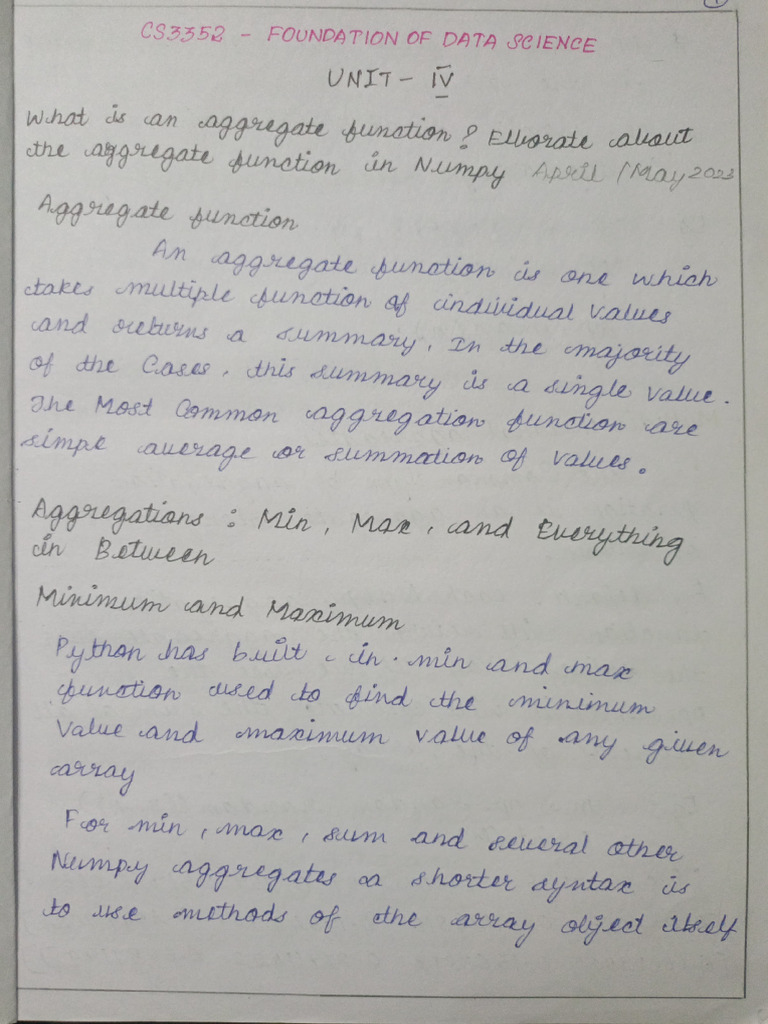 1
CS3352 - FOUNDATION OF DATA SCIENCE
UNIT - IV
What is an aggregate function? Elborate about
the aggregate function in Numpy April / May 2023
Aggregate function
An aggregate function is one which
takes multiple function of individual values
and returns a summary. In the majority
of the Cases, this summary is a single value.
The Most Common aggregation function are
simpe average or summation of values.
Aggregations : Min, Max, and Everything
in Between
Minimum and Maximum
Python has built - in. min and max
function used to find the minimum
value and maximum value of any given
array
For min, max, sum and several other
Numpy aggregates a shorter syntax is
to use methods of the array object itself